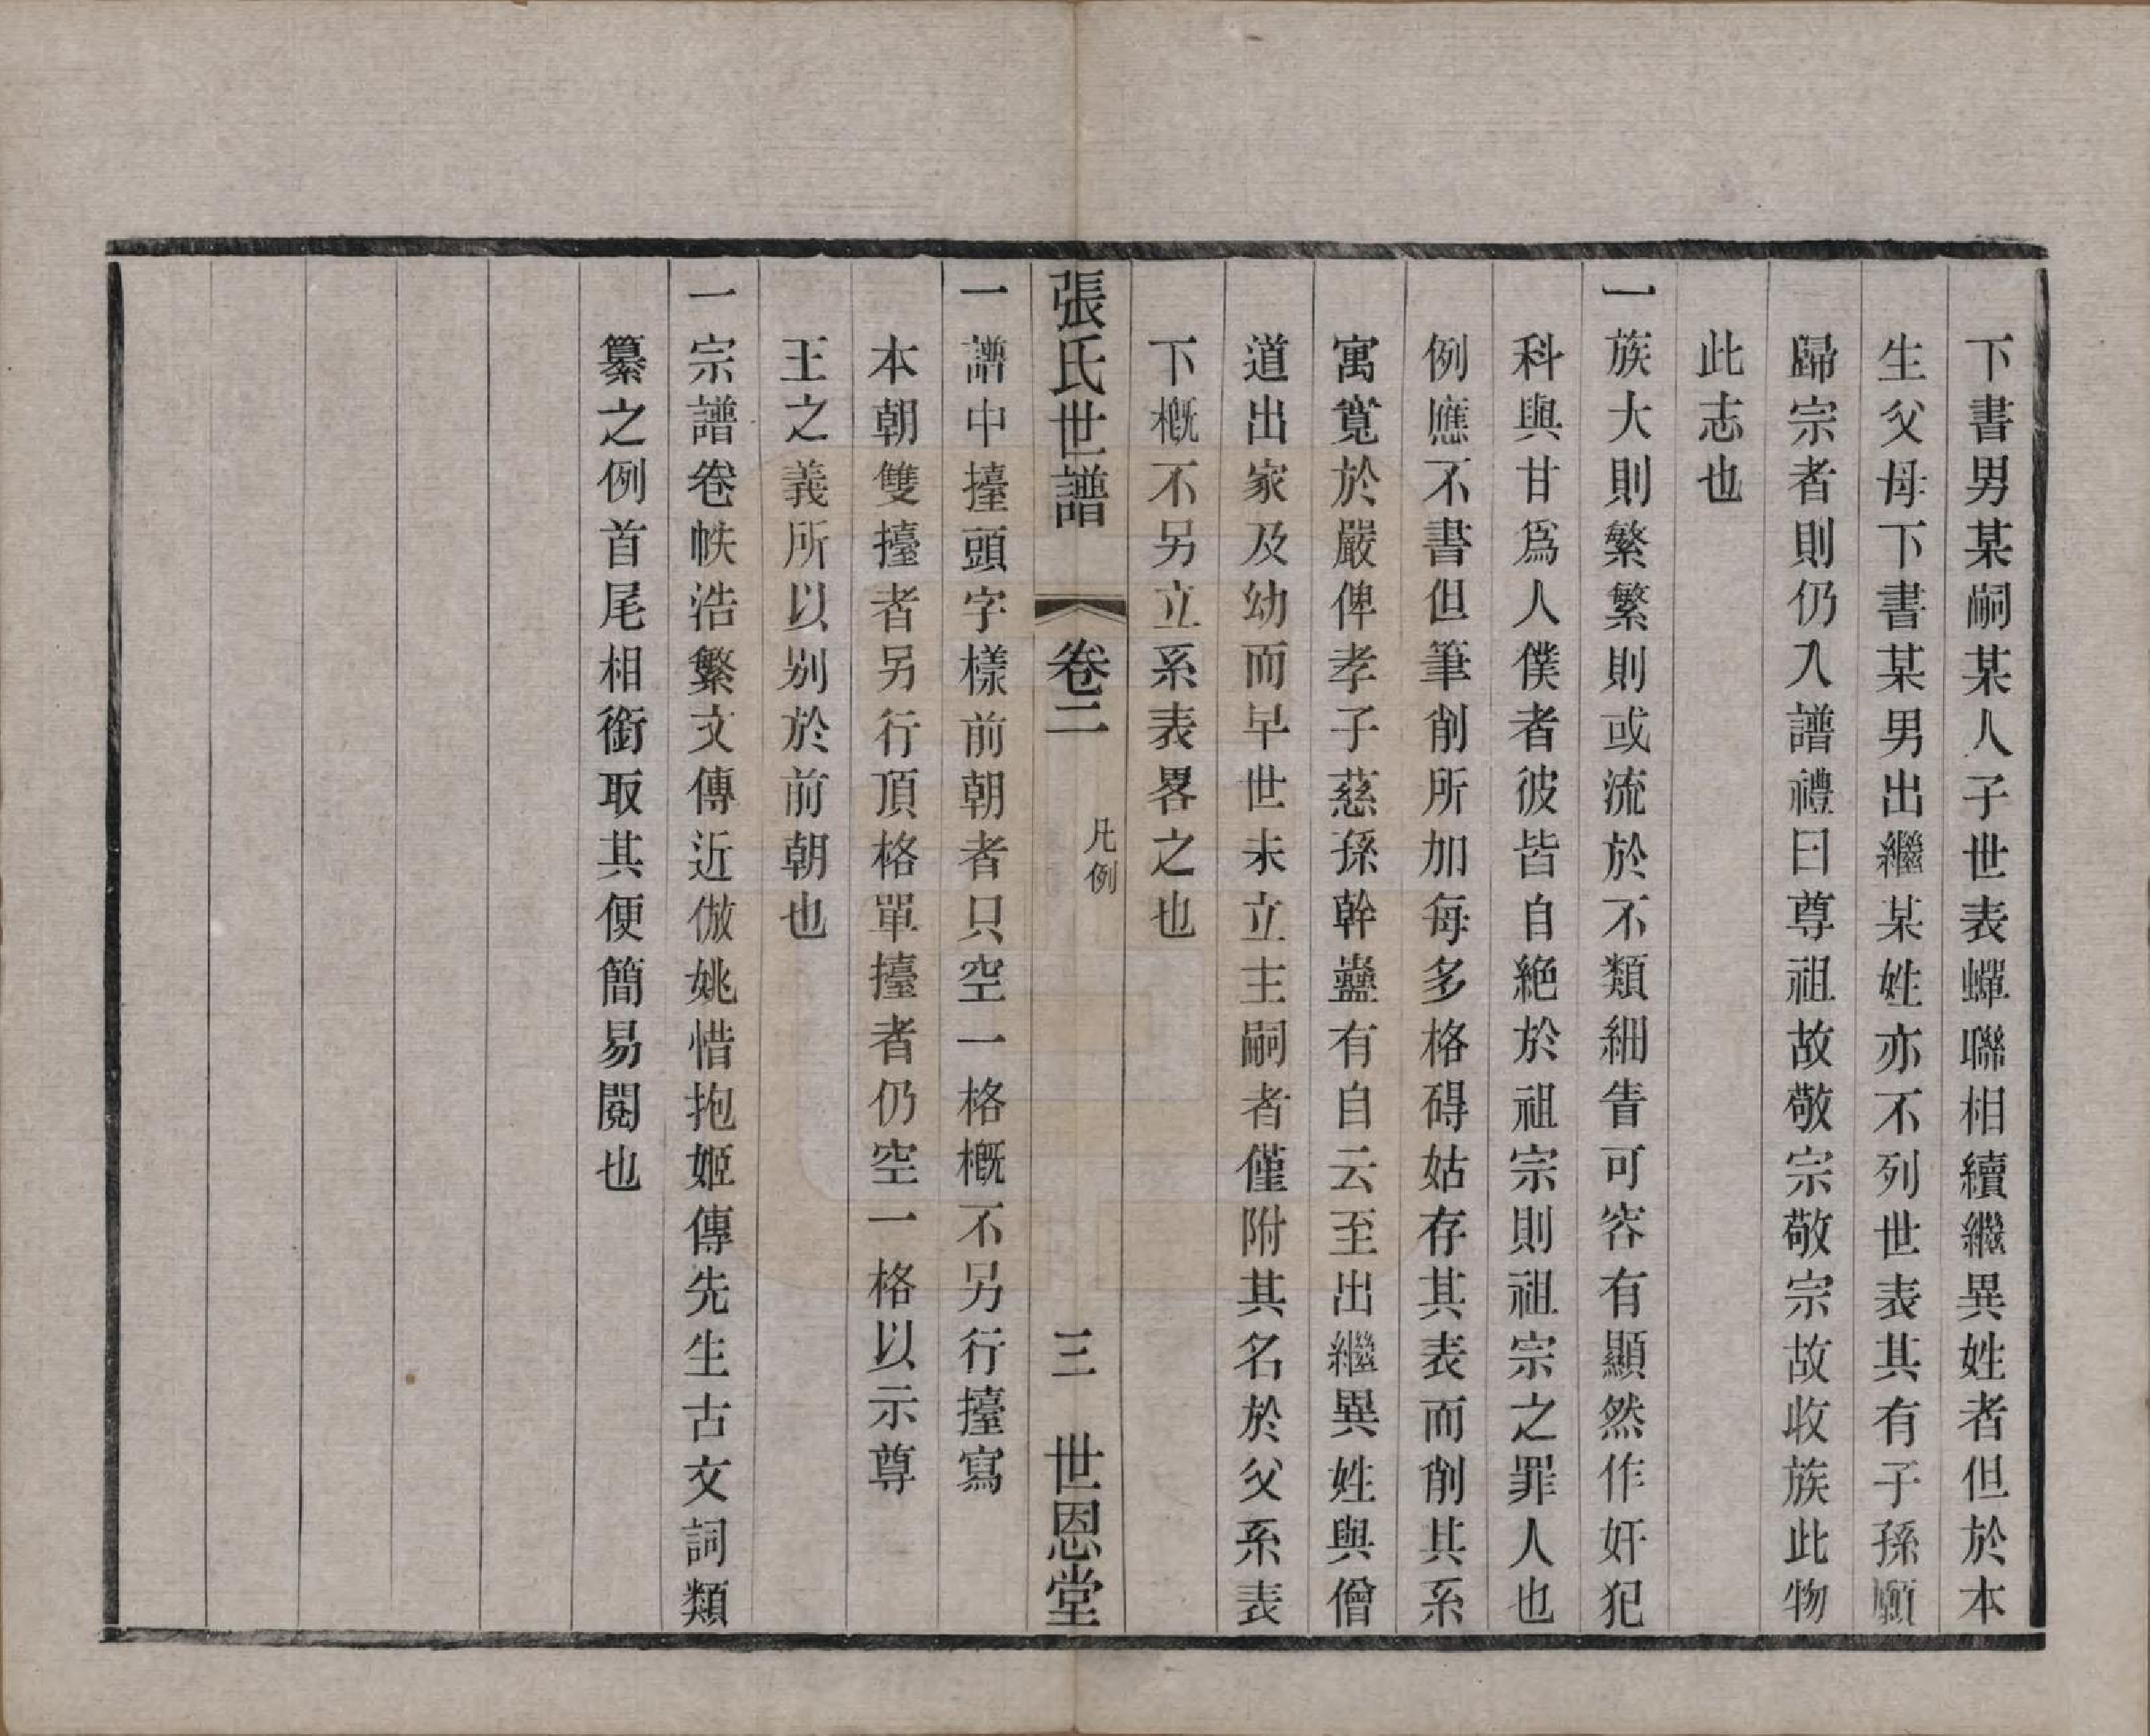 下書男某嗣某人子世表蟬聯相續繼異姓者但於本
生父母下書某男出繼某姓亦不列世表其有子孫願
歸宗者則仍入譜禮曰尊祖故敬宗敬宗故收族此物
此志也
一族大則繁繁則或流於不類細眚可容有顯然作奸犯
科與甘爲人僕者彼皆自絶於祖宗則祖宗之罪人也
例應不書但筆削所加每多格碍姑存其表而削其系
寓寬於嚴俾孝子慈孫幹蠱有自云至出繼異姓與僧
道出家及幼而早世未立主嗣者僅附其名於父系表
下槪不另立系表畧之也
張氏世譜 卷二 凡例 三 世恩堂
一譜中擡頭字樣前朝者只空一格槪不另行擡寫
本朝雙擡者另行頂格單擡者仍空一格以示尊
王之義所以别於前朝也
一宗譜卷帙浩繁文傳近倣姚惜抱姬傳先生古文詞類
纂之例首尾相銜取其便簡易閱也